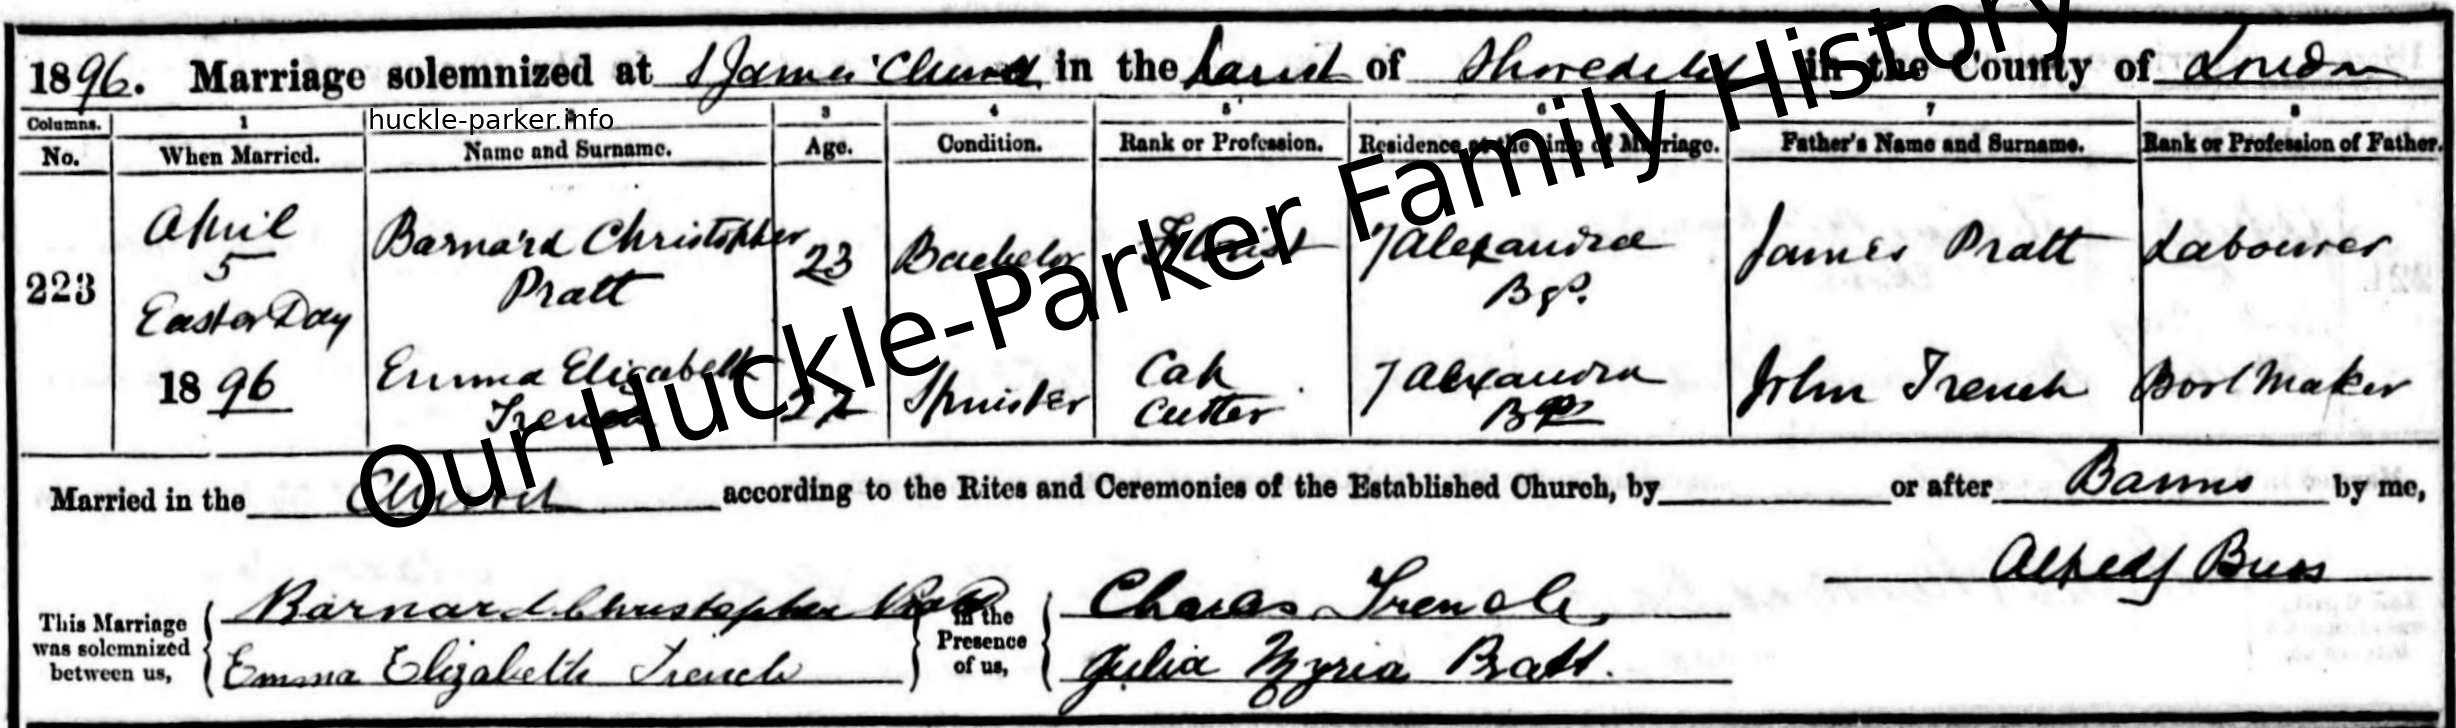 1896. Marriage solemnized at S James' Church in the Parish of Shoreditch in the County of London
Columns. 1 2 3 4 5 6 7 8
huckle-parker.info
No. When Married. Name and Surname. Age. Condition. Rank or Profession. Residence at the time of Marriage. Father's Name and Surname. Rank or Profession of Father.
223 April 5 Easter Day 1896
Barnard Christopher Pratt 23 Bachelor Florist 7 Alexandra Bgs. James Pratt Labourer
Emma Elizabeth Trench 22 Spinster Cap Cutter 7 Alexandra Bgs John Trench Boot Maker
Married in the Church according to the Rites and Ceremonies of the Established Church, by or after Banns by me,
Alfred J Buss
This Marriage was solemnized between us,
Barnard Christopher Pratt
Emma Elizabeth Trench
in the Presence of us,
Charles Trench
Julia Myria Pratt.
Our Huckle-Parker Family History